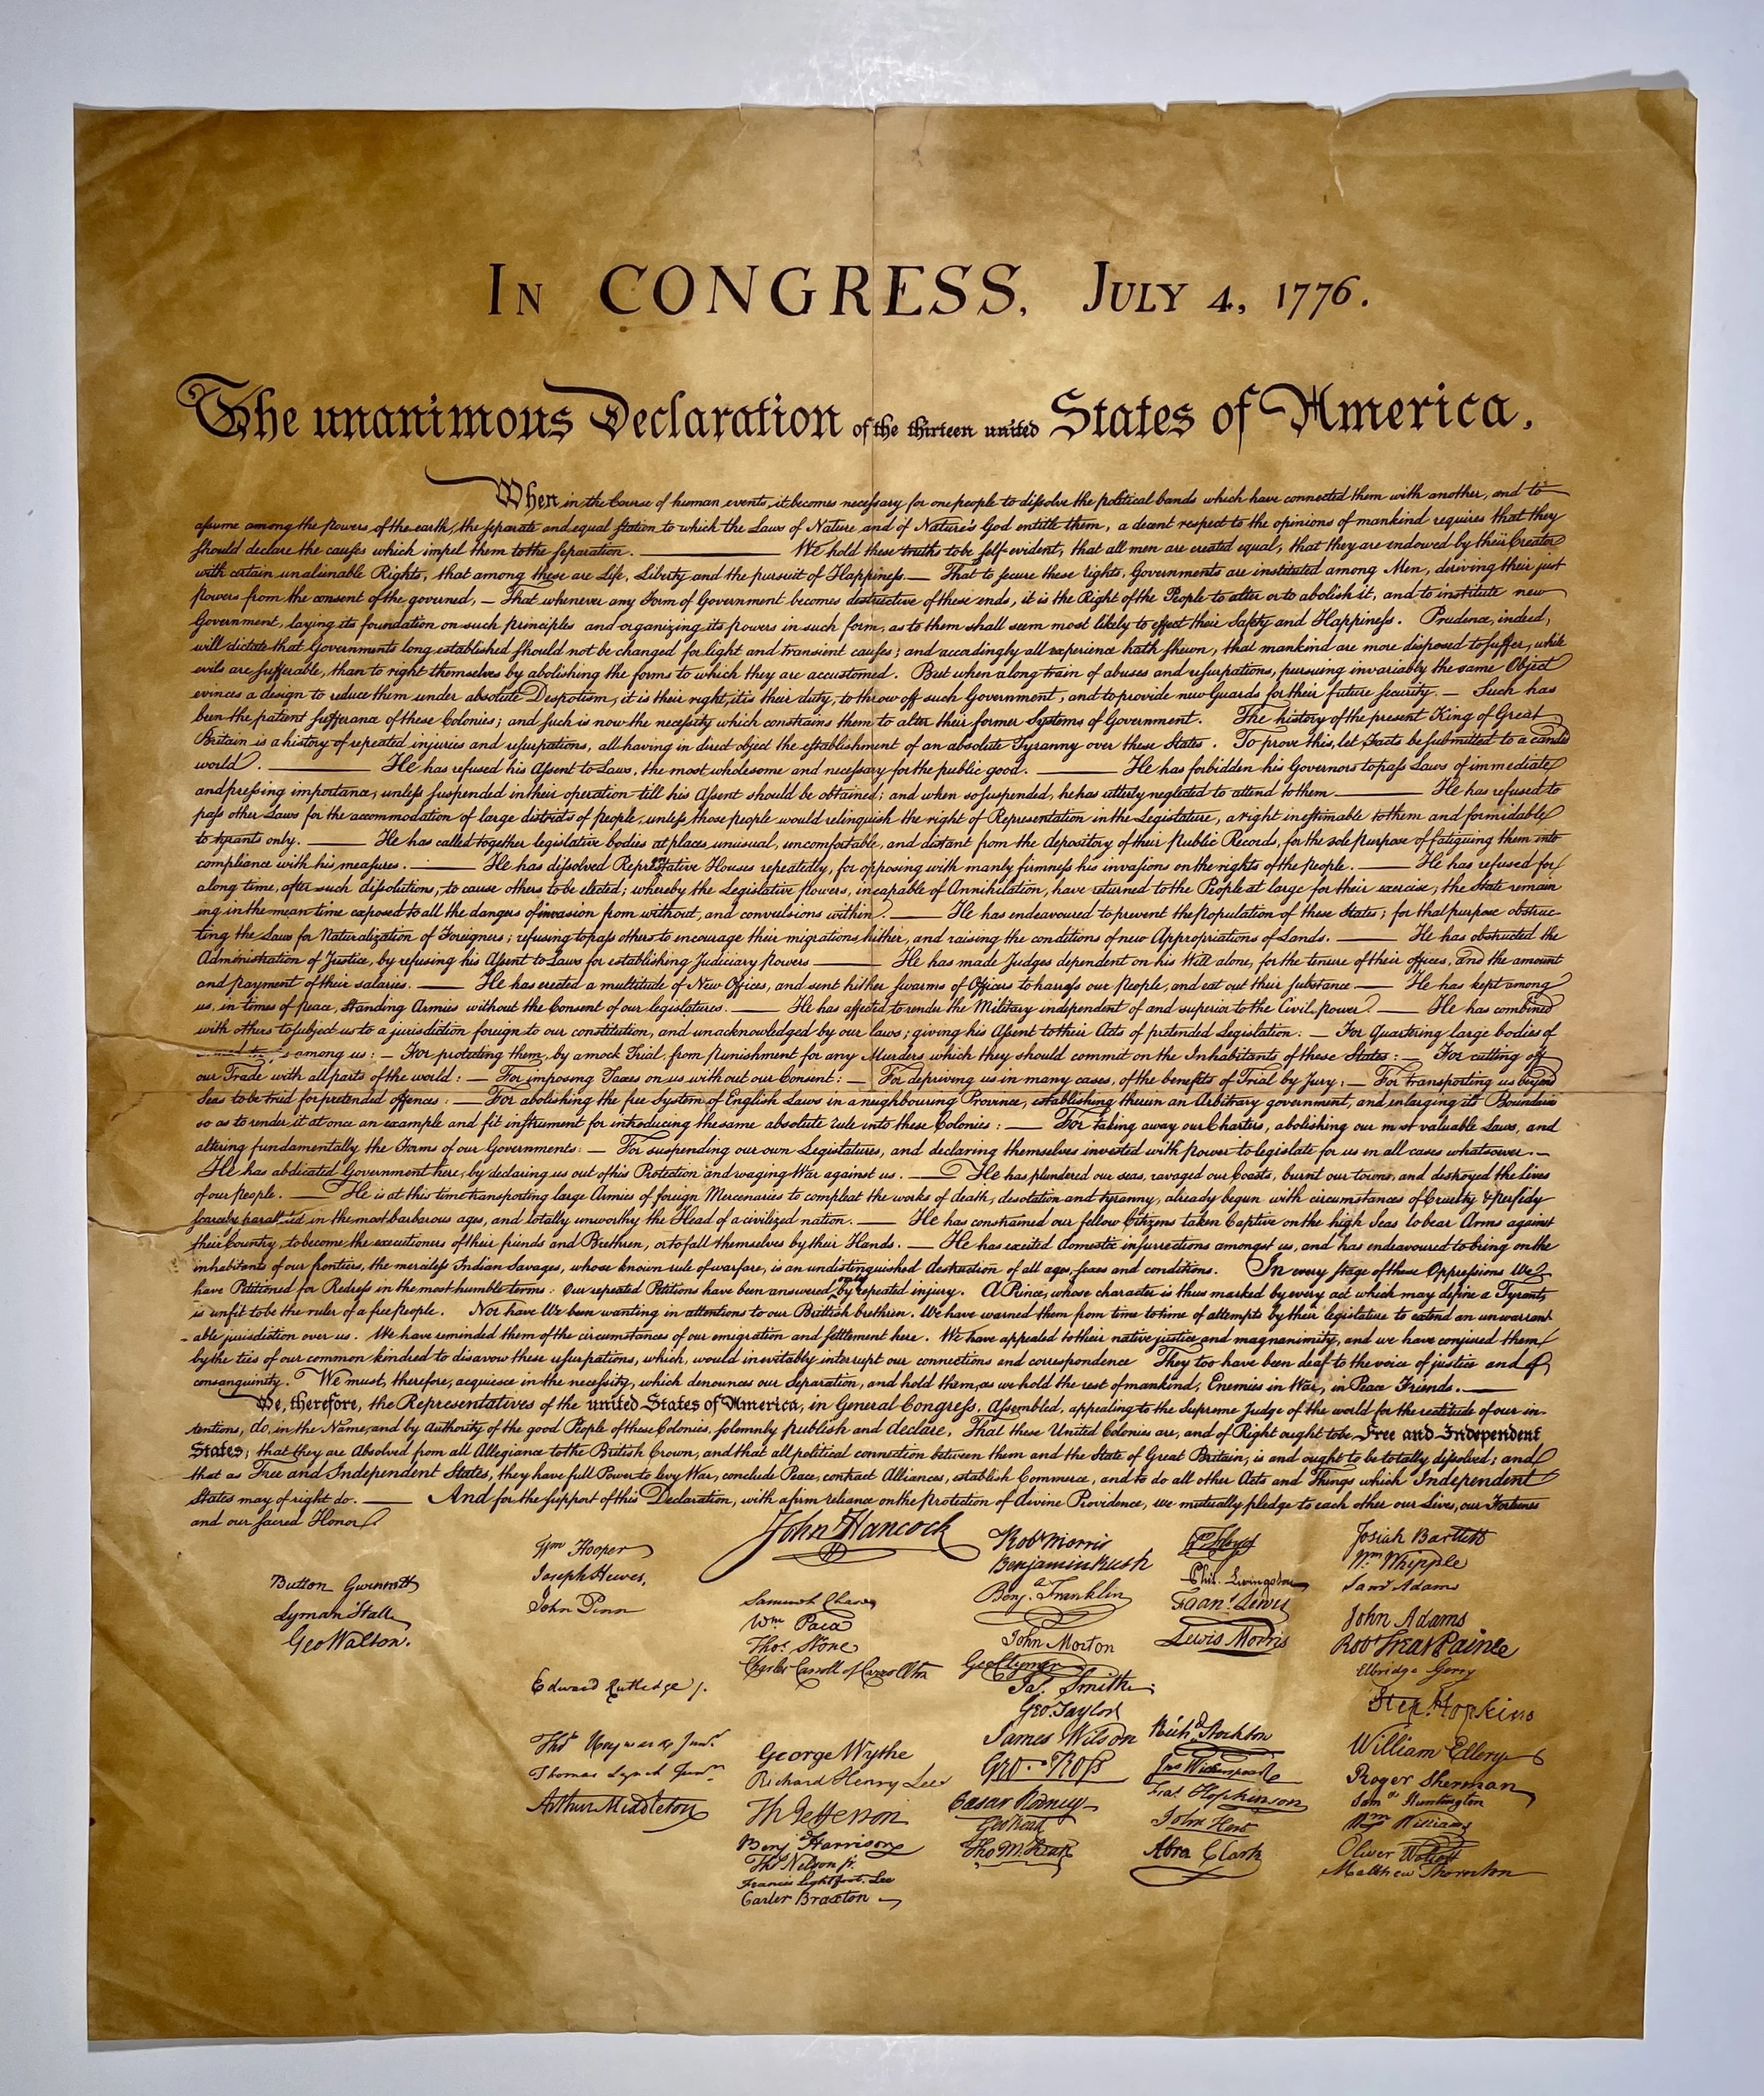 In CONGRESS, July 4, 1776.
The unanimous Declaration of the thirteen united States of America.
When in the Course of human events, it becomes necessary for one people to dissolve the political bands which have connected them with another, and to
assume among the powers of the earth, the separate and equal station to which the Laws of Nature and of Nature's God entitle them, a decent respect to the opinions of mankind requires that they
should declare the causes which impel them to the separation. ——— We hold these truths to be self-evident, that all men are created equal, that they are endowed by their Creator
with certain unalienable Rights, that among these are Life, Liberty and the pursuit of Happiness.— That to secure these rights, Governments are instituted among Men, deriving their just
powers from the consent of the governed, — That whenever any Form of Government becomes destructive of these ends, it is the Right of the People to alter or to abolish it, and to institute new
Government, laying its foundation on such principles and organizing its powers in such form, as to them shall seem most likely to effect their Safety and Happiness. Prudence, indeed,
will dictate that Governments long established should not be changed for light and transient causes; and accordingly all experience hath shewn, that mankind are more disposed to suffer, while
evils are sufferable, than to right themselves by abolishing the forms to which they are accustomed. But when a long train of abuses and usurpations, pursuing invariably the same Object
evinces a design to reduce them under absolute Despotism, it is their right, it is their duty, to throw off such Government, and to provide new Guards for their future security. — Such has
been the patient sufferance of these Colonies; and such is now the necessity which constrains them to alter their former Systems of Government. The history of the present King of Great
Britain is a history of repeated injuries and usurpations, all having in direct object the establishment of an absolute Tyranny over these States. To prove this, let Facts be submitted to a candid
world. ——— He has refused his Assent to Laws, the most wholesome and necessary for the public good. ——— He has forbidden his Governors to pass Laws of immediate
and pressing importance, unless suspended in their operation till his Assent should be obtained; and when so suspended, he has utterly neglected to attend to them ——— He has refused to
pass other Laws for the accommodation of large districts of people, unless those people would relinquish the right of Representation in the Legislature, a right inestimable to them and formidable
to tyrants only. ——— He has called together legislative bodies at places unusual, uncomfortable, and distant from the depository of their Public Records, for the sole purpose of fatiguing them into
compliance with his measures. ——— He has dissolved Representative Houses repeatedly, for opposing with manly firmness his invasions on the rights of the people. ——— He has refused for
a long time, after such dissolutions, to cause others to be elected; whereby the Legislative powers, incapable of Annihilation, have returned to the People at large for their exercise; the State remain
ing in the mean time exposed to all the dangers of invasion from without, and convulsions within. ——— He has endeavoured to prevent the Population of these States; for that purpose obstruc-
ting the Laws for Naturalization of Foreigners; refusing to pass others to encourage their migrations hither, and raising the conditions of new Appropriations of Lands. ——— He has obstructed the
Administration of Justice, by refusing his Assent to Laws for establishing Judiciary powers ——— He has made Judges dependent on his Will alone, for the tenure of their offices, and the amount
and payment of their salaries. ——— He has erected a multitude of New Offices, and sent hither swarms of Officers to harrass our People, and eat out their substance — He has kept among
us, in times of peace, Standing Armies without the Consent of our legislatures. ——— He has affected to render the Military independent of and superior to the Civil power. — He has combined
with others to subject us to a jurisdiction foreign to our constitution, and unacknowledged by our laws; giving his Assent to their Acts of pretended Legislation: — For Quartering large bodies of
among us: — For protecting them, by a mock Trial, from punishment for any Murders which they should commit on the Inhabitants of these States: — For cutting off
our Trade with all parts of the world: — For imposing Taxes on us without our Consent: — For depriving us in many cases, of the benefits of Trial by Jury: — For transporting us beyond
Seas to be tried for pretended offences: — For abolishing the free System of English Laws in a neighbouring Province, establishing therein an Arbitrary government, and enlarging its Boundaries
so as to render it at once an example and fit instrument for introducing the same absolute rule into these Colonies: — For taking away our Charters, abolishing our most valuable Laws, and
altering fundamentally the Forms of our Governments: — For suspending our own Legislatures, and declaring themselves invested with power to legislate for us in all cases whatsoever. —
He has abdicated Government here, by declaring us out of his Protection and waging War against us. — He has plundered our seas, ravaged our Coasts, burnt our towns, and destroyed the Lives
of our people. — He is at this time transporting large Armies of foreign Mercenaries to compleat the works of death, desolation and tyranny, already begun with circumstances of Cruelty & perfidy
scarcely paralleled in the most barbarous ages, and totally unworthy the Head of a civilized nation. — He has constrained our fellow Citizens taken Captive on the high Seas to bear Arms against
their Country, to become the executioners of their friends and Brethren, or to fall themselves by their Hands. — He has excited domestic insurrections amongst us, and has endeavoured to bring on the
inhabitants of our frontiers, the merciless Indian Savages, whose known rule of warfare, is an undistinguished destruction of all ages, sexes and conditions. In every stage of these Oppressions We
have Petitioned for Redress in the most humble terms: Our repeated Petitions have been answered only by repeated injury. A Prince, whose character is thus marked by every act which may define a Tyrant,
is unfit to be the ruler of a free people. Nor have We been wanting in attentions to our Brittish brethren. We have warned them from time to time of attempts by their legislature to extend an unwarrant
-able jurisdiction over us. We have reminded them of the circumstances of our emigration and settlement here. We have appealed to their native justice and magnanimity, and we have conjured them
by the ties of our common kindred to disavow these usurpations, which, would inevitably interrupt our connections and correspondence They too have been deaf to the voice of justice and of
consanguinity. We must, therefore, acquiesce in the necessity, which denounces our Separation, and hold them, as we hold the rest of mankind, Enemies in War, in Peace Friends. ——
We, therefore, the Representatives of the united States of America, in General Congress, Assembled, appealing to the Supreme Judge of the world for the rectitude of our in-
tentions, do, in the Name, and by Authority of the good People of these Colonies, solemnly publish and declare, That these United Colonies are, and of Right ought to be Free and Independent
States; that they are Absolved from all Allegiance to the British Crown, and that all political connection between them and the State of Great Britain, is and ought to be totally dissolved; and
that as Free and Independent States, they have full Power to levy War, conclude Peace, contract Alliances, establish Commerce, and to do all other Acts and Things which Independent
States may of right do. ——— And for the support of this Declaration, with a firm reliance on the protection of divine Providence, we mutually pledge to each other our Lives, our Fortunes
and our sacred Honor.
Button Gwinnett
Lyman Hall
Geo Walton.
Wm Hooper
Joseph Hewes,
John Penn
Edward Rutledge /.
Thos Heyward Junr.
Thomas Lynch Junr.
Arthur Middleton
John Hancock
Samuel Chase
Wm. Paca
Thos. Stone
Charles Carroll of Carrollton
George Wythe
Richard Henry Lee
Th Jefferson
Benj Harrison
Thos Nelson jr.
Francis Lightfoot Lee
Carter Braxton
Robt Morris
Benjamin Rush
Benja. Franklin
John Morton
Geo Clymer
Jas. Smith
Geo. Taylor
James Wilson
Geo. Ross
Caesar Rodney
Geo Read
Tho M:Kean
Wm Floyd
Phil. Livingston
Frans. Lewis
Lewis Morris
Richd Stockton
Jno Witherspoon
Fras. Hopkinson
John Hart
Abra Clark
Josiah Bartlett
Wm Whipple
Saml Adams
John Adams
Robt Treat Paine
Elbridge Gerry
Step. Hopkins
William Ellery
Roger Sherman
Saml Huntington
Wm Williams
Oliver Wolcott
Matthew Thornton